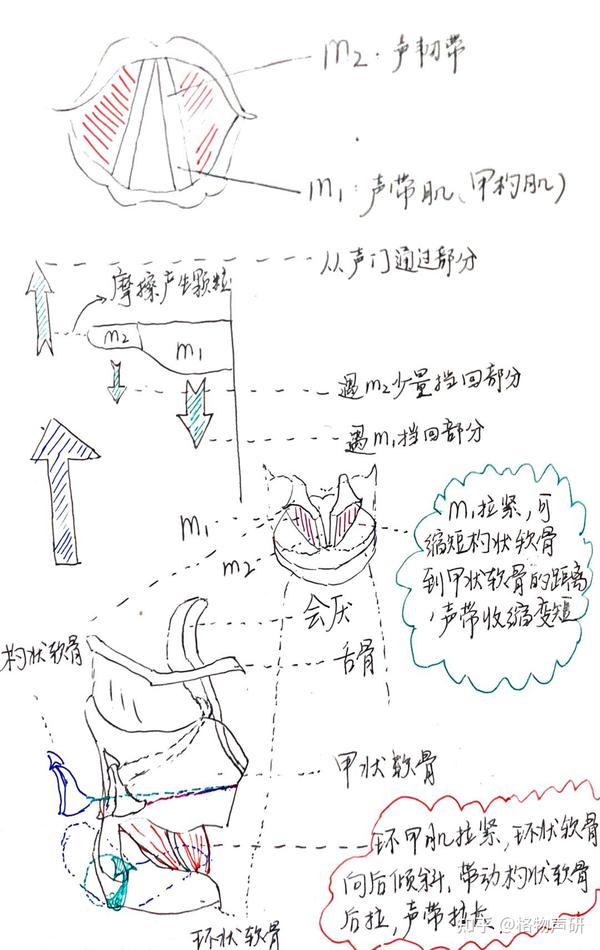 m2·声韧带
m1:声带肌(甲杓肌)
从声门通过部分
摩擦产生颗粒
m2
m1
遇m2少量挡回部分
遇m1挡回部分
m1
m2
m1拉紧,可
缩短杓状软骨
到甲状软骨的距离
,声带收缩变短
会厌
杓状软骨
舌骨
甲状软骨
环甲肌拉紧,环状软骨
向后倾斜,带动杓状软骨
后拉,声带拉长
环状软骨
知乎 @格物声研